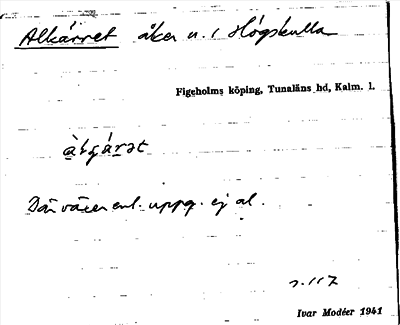 Alkärret åker u. i Högskulla
Figeholms köping, Tunaläns hd, Kalm. l.
Där växer enl. uppg. ej al.
s. 117
Ivar Modéer 1941